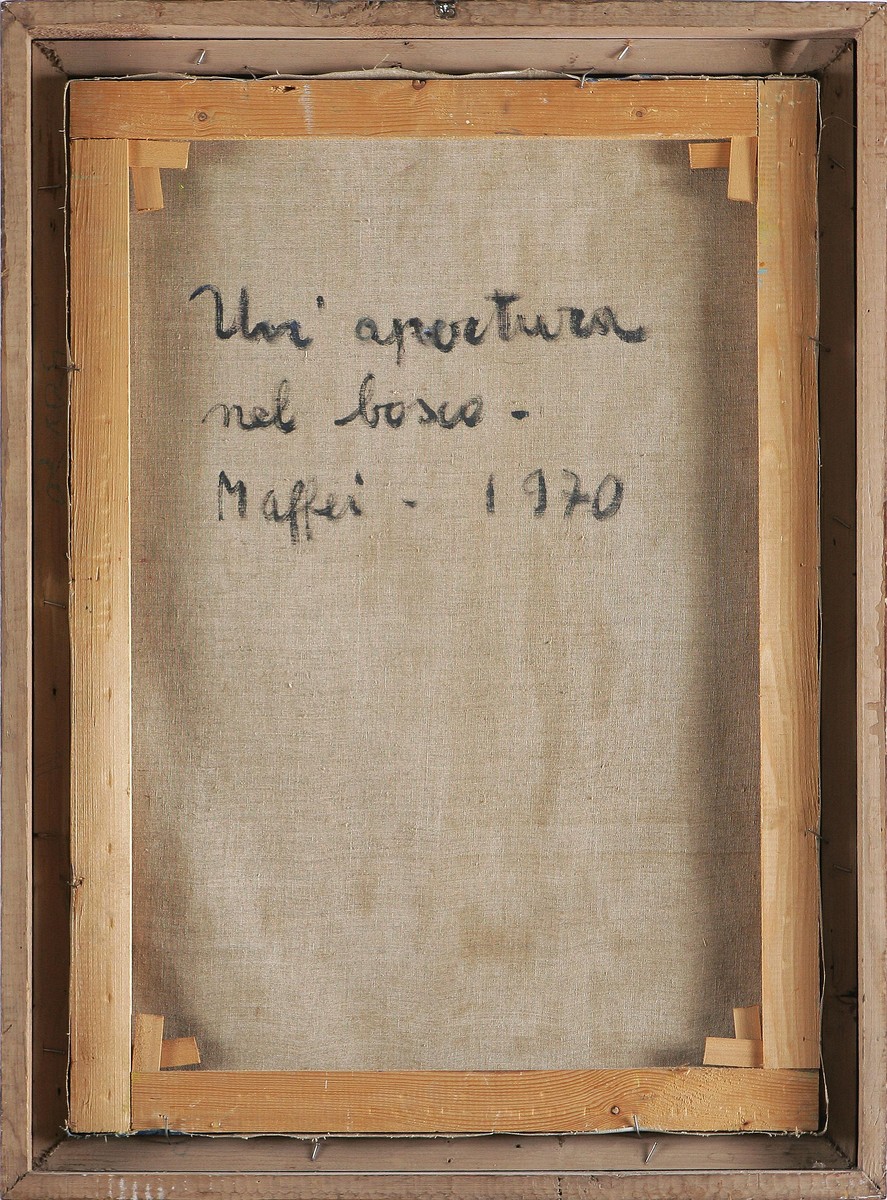 Un' apertura
nel bosco -
Maffei - 1970